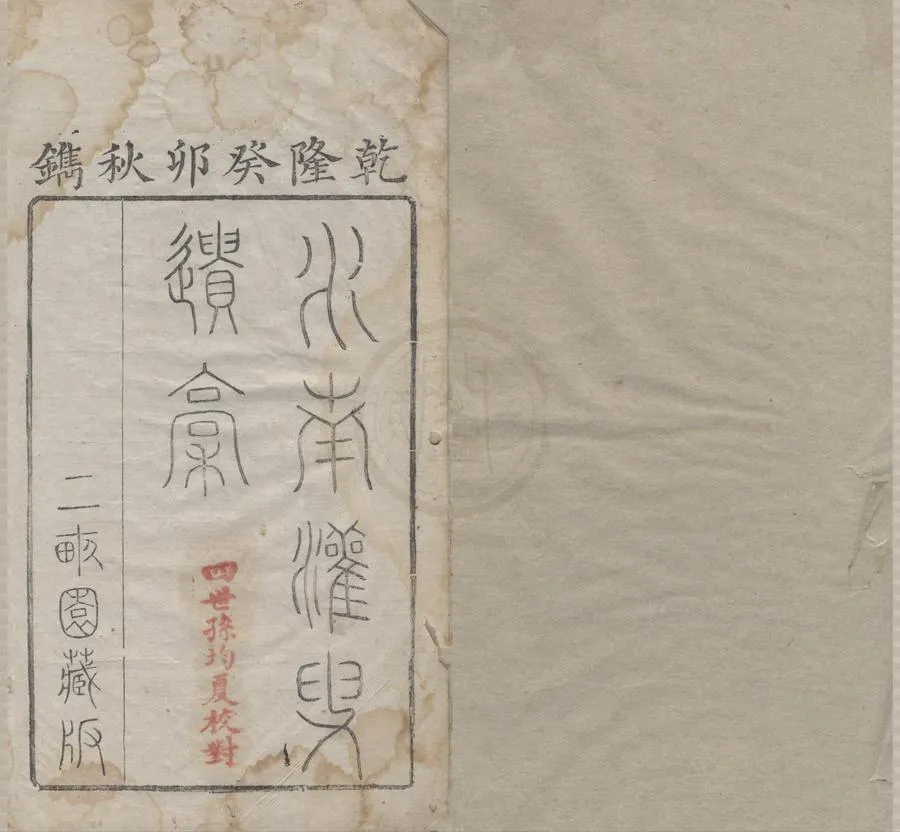 乾隆癸卯秋鐫
水南灌叟
遺稾
四世孫均夏校對
二畝園藏版